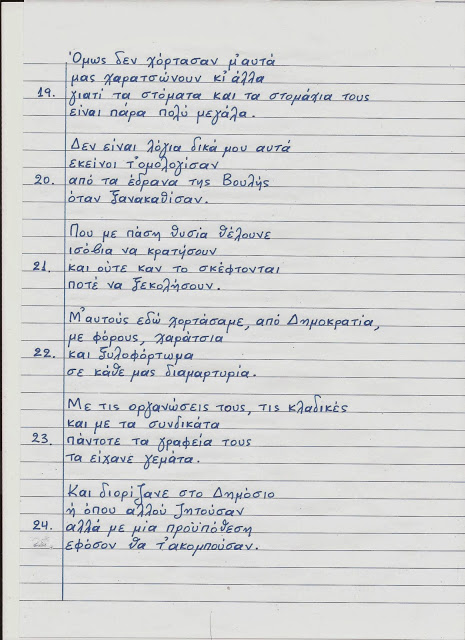 Όμως δεν χόρτασαν μ'αυτά
μας χαρατσώνουν κι'άλλα
19. γιατί τα στόματα και τα στομάχια τους
είναι πάρα πολύ μεγάλα.
Δεν είναι λόγια δικά μου αυτά
εκείνοι τ'ομολογίσαν
20. από τα έδρανα της Βουλής
όταν ξανακαθίσαν.
Που με πάση θυσία θέλουνε
ισόβια να κρατήσουν
21. και ούτε καν το σκέφτονται
ποτέ να ξεκολήσουν.
Μ'αυτούς εδώ χορτάσαμε, από Δημοκρατία,
με φόρους, χαράτσια
22. και ξυλοφόρτωμα
σε κάθε μας διαμαρτυρία.
Με τις οργανώσεις τους, τις κλαδικές
και με τα συνδικάτα
23. πάντοτε τα γραφεία τους
τα είχανε γεμάτα.
Και διορίζανε στο Δημόσιο
ή όπου αλλού ζητούσαν
24. αλλά με μία προϋπόθεση
εφόσον θα τ'ακομπούσαν.